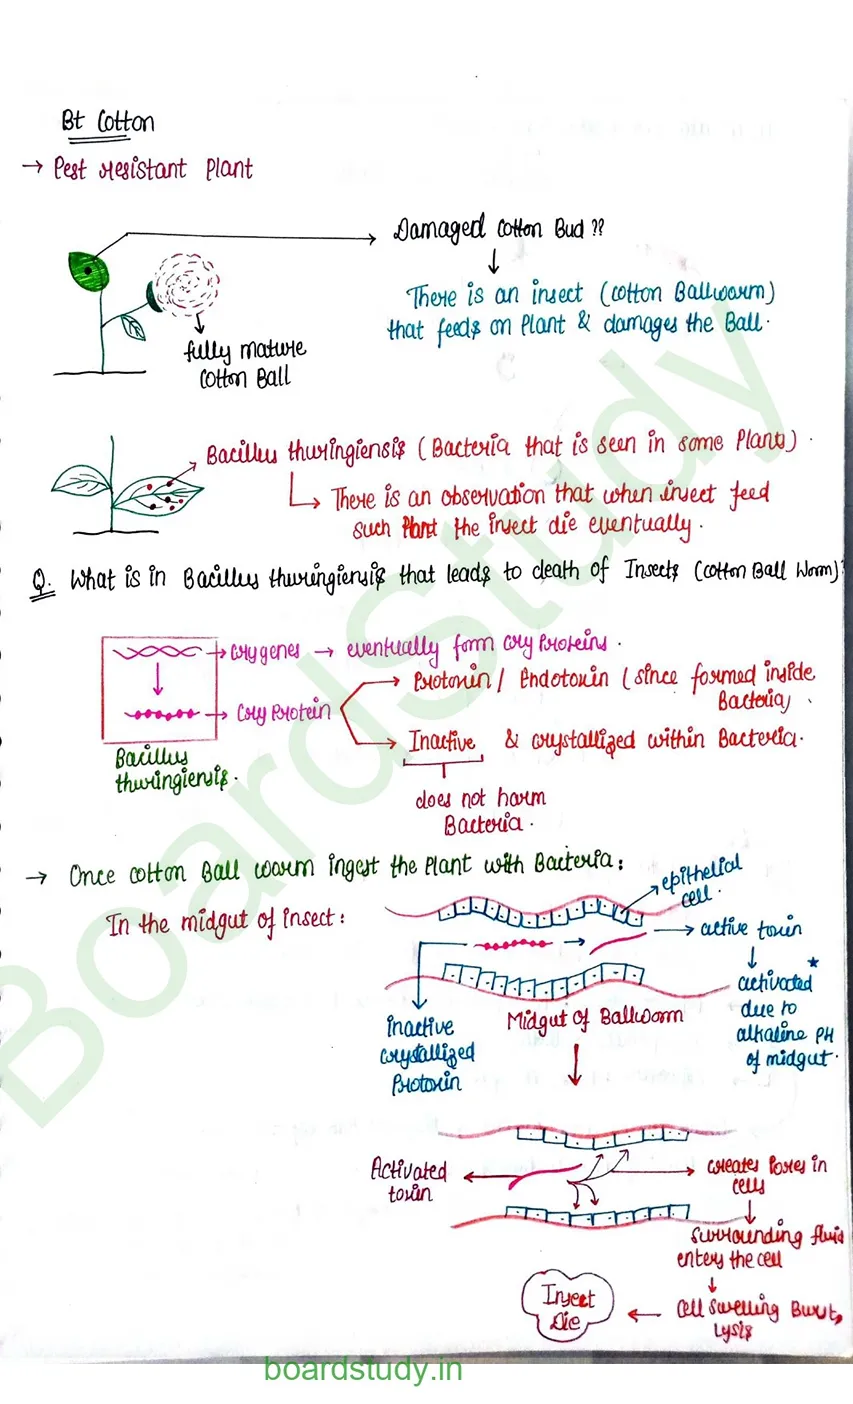 Bt Cotton
→ Pest resistant Plant
Damaged Cotton Bud ??
There is an insect (cotton Ballworm)
that feeds on Plant & damages the Ball.
fully mature
Cotton Ball
Bacillus thuringiensis (Bacteria that is seen in some Plants).
There is an observation that when insect feed
such Plant the insect die eventually.
Q. What is in Bacillus thuringiensis that leads to death of Insects (cotton Ball Worm)?
cry genes → eventually form cry Proteins.
Protoxin / Endotoxin (since formed inside
Bacteria)
Cry Protein
Inactive & crystallized within Bacteria.
Bacillus
thuringiensis.
does not harm
Bacteria.
→ Once cotton Ball worm ingest the Plant with Bacteria:
epithelial
cell.
In the midgut of insect:
active toxin
activated*
due to
alkaline PH
of midgut.
inactive
crystallized
Protoxin
Midgut of Ballworm
Activated
toxin
creates Pores in
cells
surrounding fluid
enters the cell
cell swelling Burst,
Lysis
Insect
Die
BoardStudy
boardstudy.in